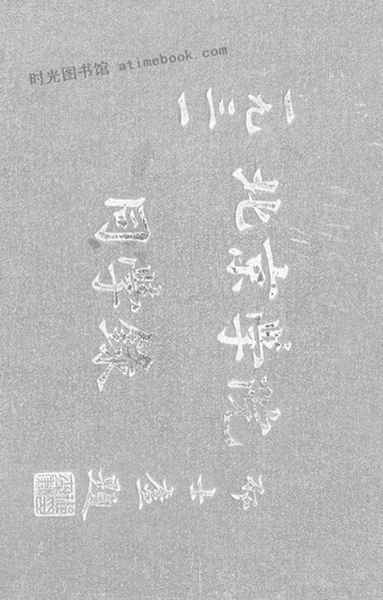 时光图书馆 atimebook.com
一九三一
北京学院
同学錄